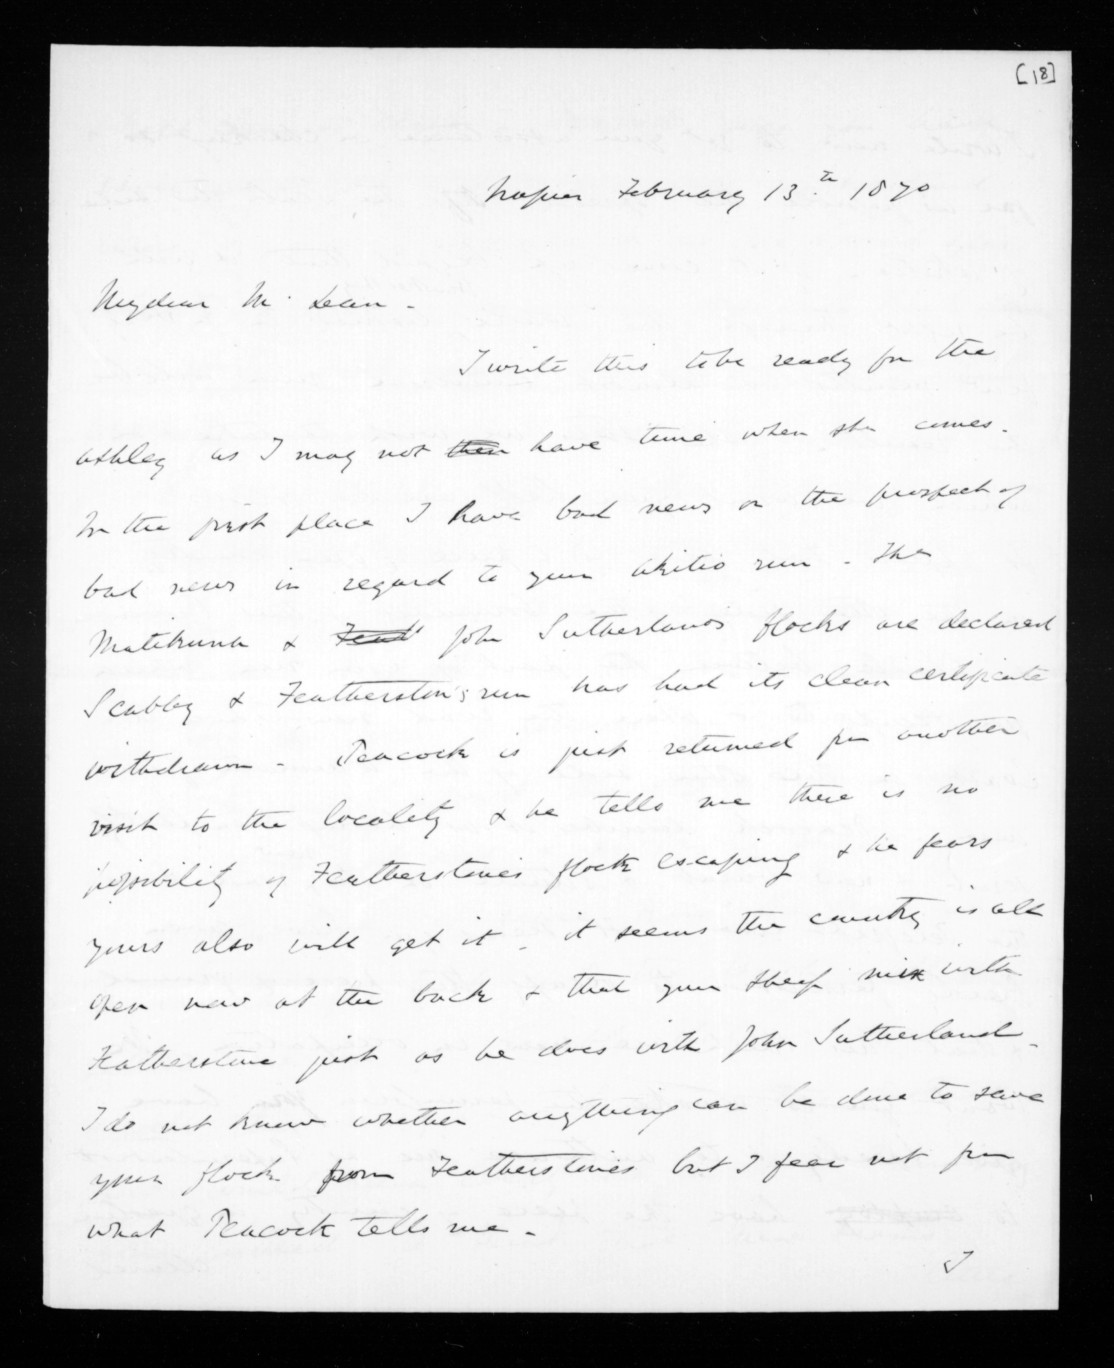 [18]
Napier February 13th 1870
My dear McLean -
I write this to be ready for the
Ashley as I may not then have time when she comes.
In the first place I have bad news or the prospect of
bad news in regard to your Akitio run - The
Matikuna & Feath John Sutherlands flocks are declared
Scabby & Featherston's run has had its clean certificate
withdrawn - Peacock is just returned from another
visit to the locality & he tells me there is no
possibility of Featherstones flock escaping & he fears
yours also will get it - it seems the country is all
open now at the back & that your sheep mix with
Featherstone just as he does with John Sutherland -
I do not know whether anything can be done to save
your flock from Featherstones but I fear not from
what Peacock tells me -
I